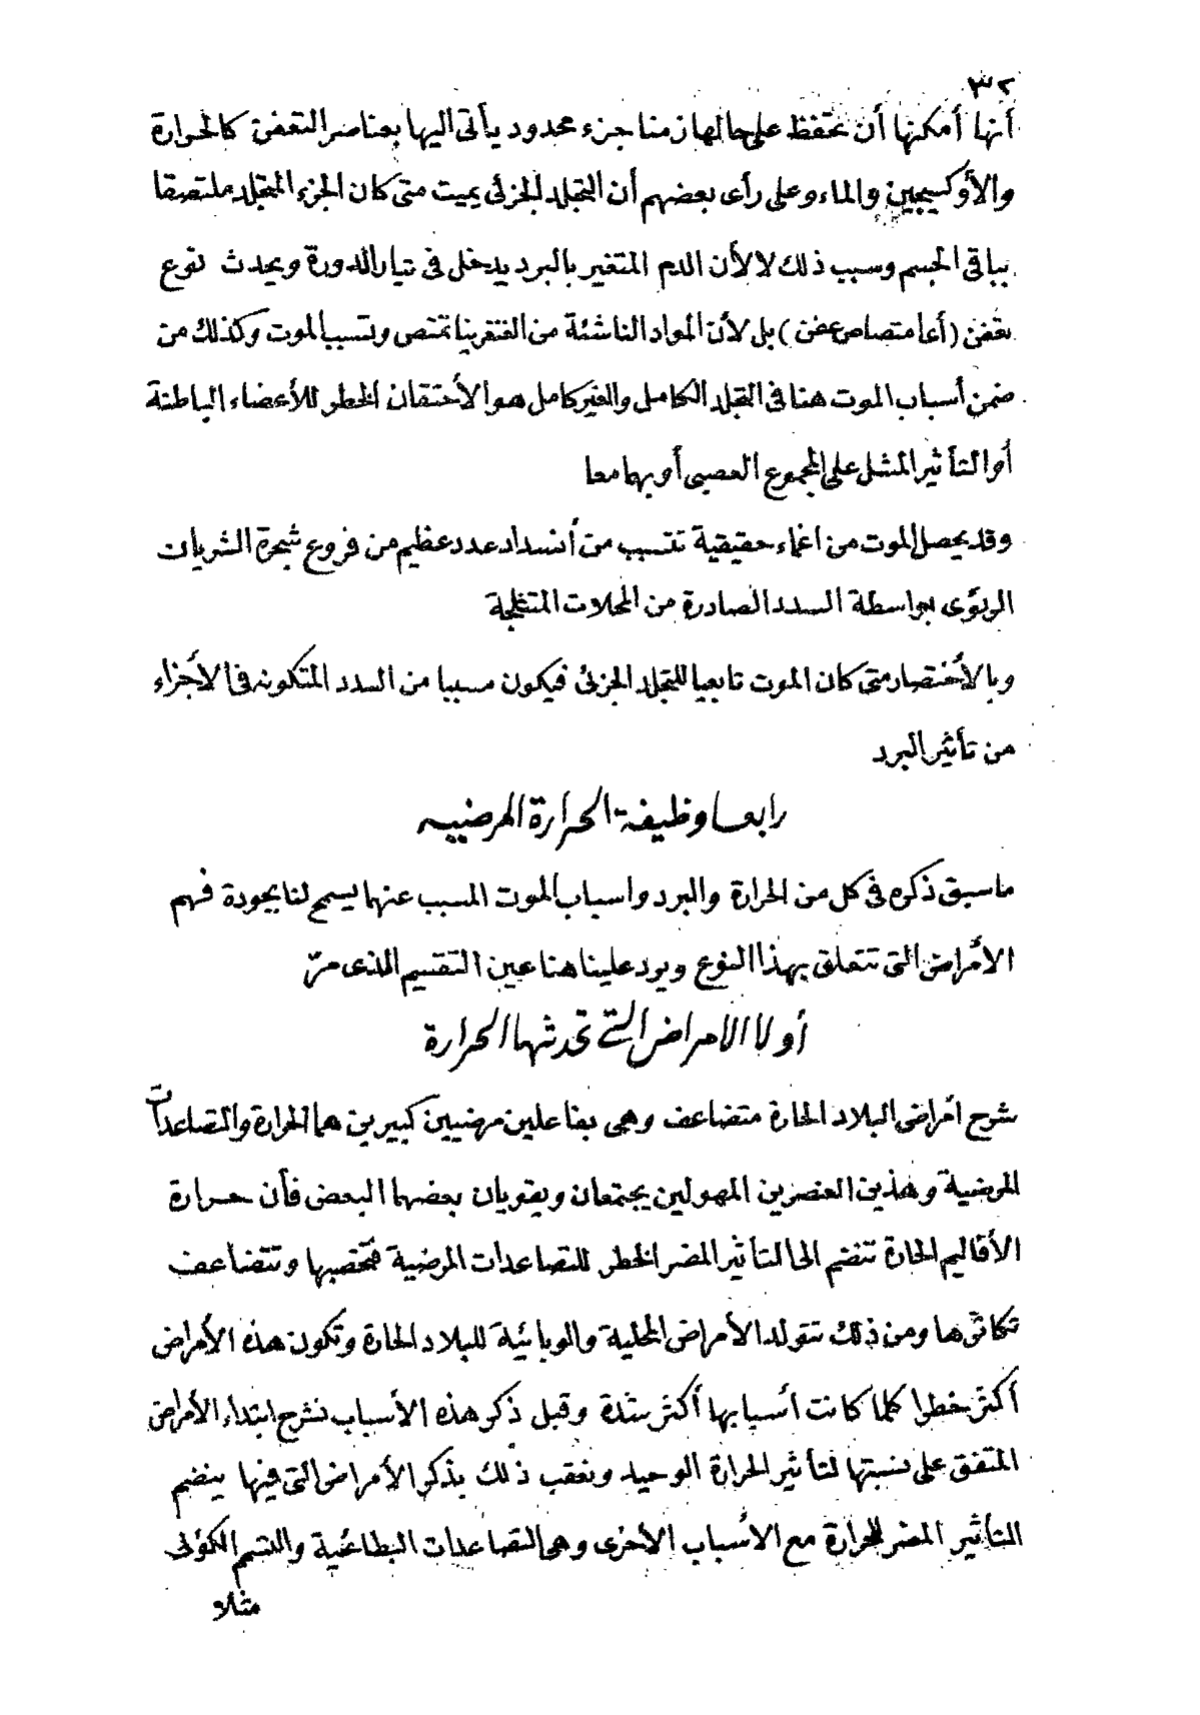 ٣٢
أنها أمكنها أن تحتفظ على حالها زمنا جزء محدود يأتى اليها بعناصر التعفن كالحرارة
والأوكسيجين والماء وعلى رأى بعضهم أن التجلد الجزئى يميت متى كان الجزء المتجلد ملتصقا
بباقى الجسم وسبب ذلك لا لأن الدم المتغير بالبرد يدخل فى تيار الدورة ويحدث نوع
تعفن (أى امتصاص عفن) بل لأن المواد الناشئة من الغنغرينا تمتص وتسبب الموت وكذلك من
ضمن أسباب الموت هنا فى التجلد الكامل والغير كامل هو الأحتقان الخطر للأعضاء الباطنة
أو التأثير المشل على المجموع العصبى أو بهما معا
وقد يحصل الموت من اغماء حقيقية تتسبب من أنسداد عدد عظيم من فروع شجرة الشريان
الرئوى بواسطة السدد الصادرة من المحلات المتثلجة
وبالأختصار متى كان الموت تابعيا للتجلد الجزئى فيكون مسببا من السدد المتكونه فى الأجزاء
من تأثير البرد
رابعا وظيفة الحرارة المرضيه
ما سبق ذكره فى كل من الحرارة والبرد واسباب الموت المسبب عنهما يسمح لنا بجودة فهم
الأمراض التى تتعلق بهذا النوع ويود علينا هنا عين التقسيم الذى مرّ
أولا الامراض التى تحدثها الحرارة
شرح أمراض البلاد الحارة متضاعف وهى بفاعلين مرضيين كبيرين هما الحرارة والتصاعدات
المرضية وهذين العنصرين المهولين يجتمعان ويقويان بعضهما البعض فأن حرارة
الأقاليم الحارة تنضم الى التأثير المضر الخطر للتصاعدات المرضية فتخصبها وتتضاعف
تكاثرها ومن ذلك تتولد الأمراض المحلية والوبائية للبلاد الحارة وتكون هذه الأمراض
أكثر خطرا كلما كانت أسبابها أكثر شدة وقبل ذكر هذه الأسباب نشرح ابتداء الأمراض
المتفق على نسبتها لتأثير الحرارة الوحيد ونعقب ذلك بذكر الأمراض التى فيها ينضم
التأثير المضر للحرارة مع الأسباب الأخرى وهى التصاعدات البطائحية والتسمم الكؤلى
مثلا